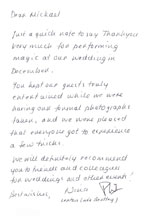 Dear Michael
Just a quick note to say Thankyou
very much for performing
magic at our wedding in
December.
You kept our guests truly
entertained while we were
having our formal photographs
taken, and we were pleased
that everyone got to experience
a few tricks.
We will definitely recommend
you to friends and colleagues
for weddings and other events!
Best wishes,